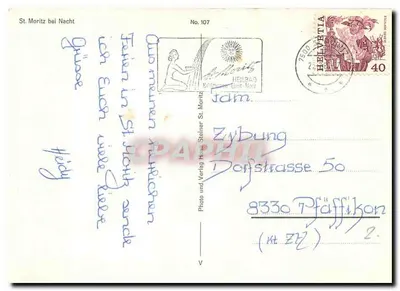 St. Moritz bei Nacht
No. 107
Aus meinen
Ferien in St. Moritz sende
ich Euch viele liebe
Grüsse
Heidy
Photo und Verlag H. Steiner St. Moritz
V
HEILBAD
HELVETIA
40
Fam.
Zybung
Dorfstrasse 50
8330 Pfäffikon
(Kt ZH)
2.